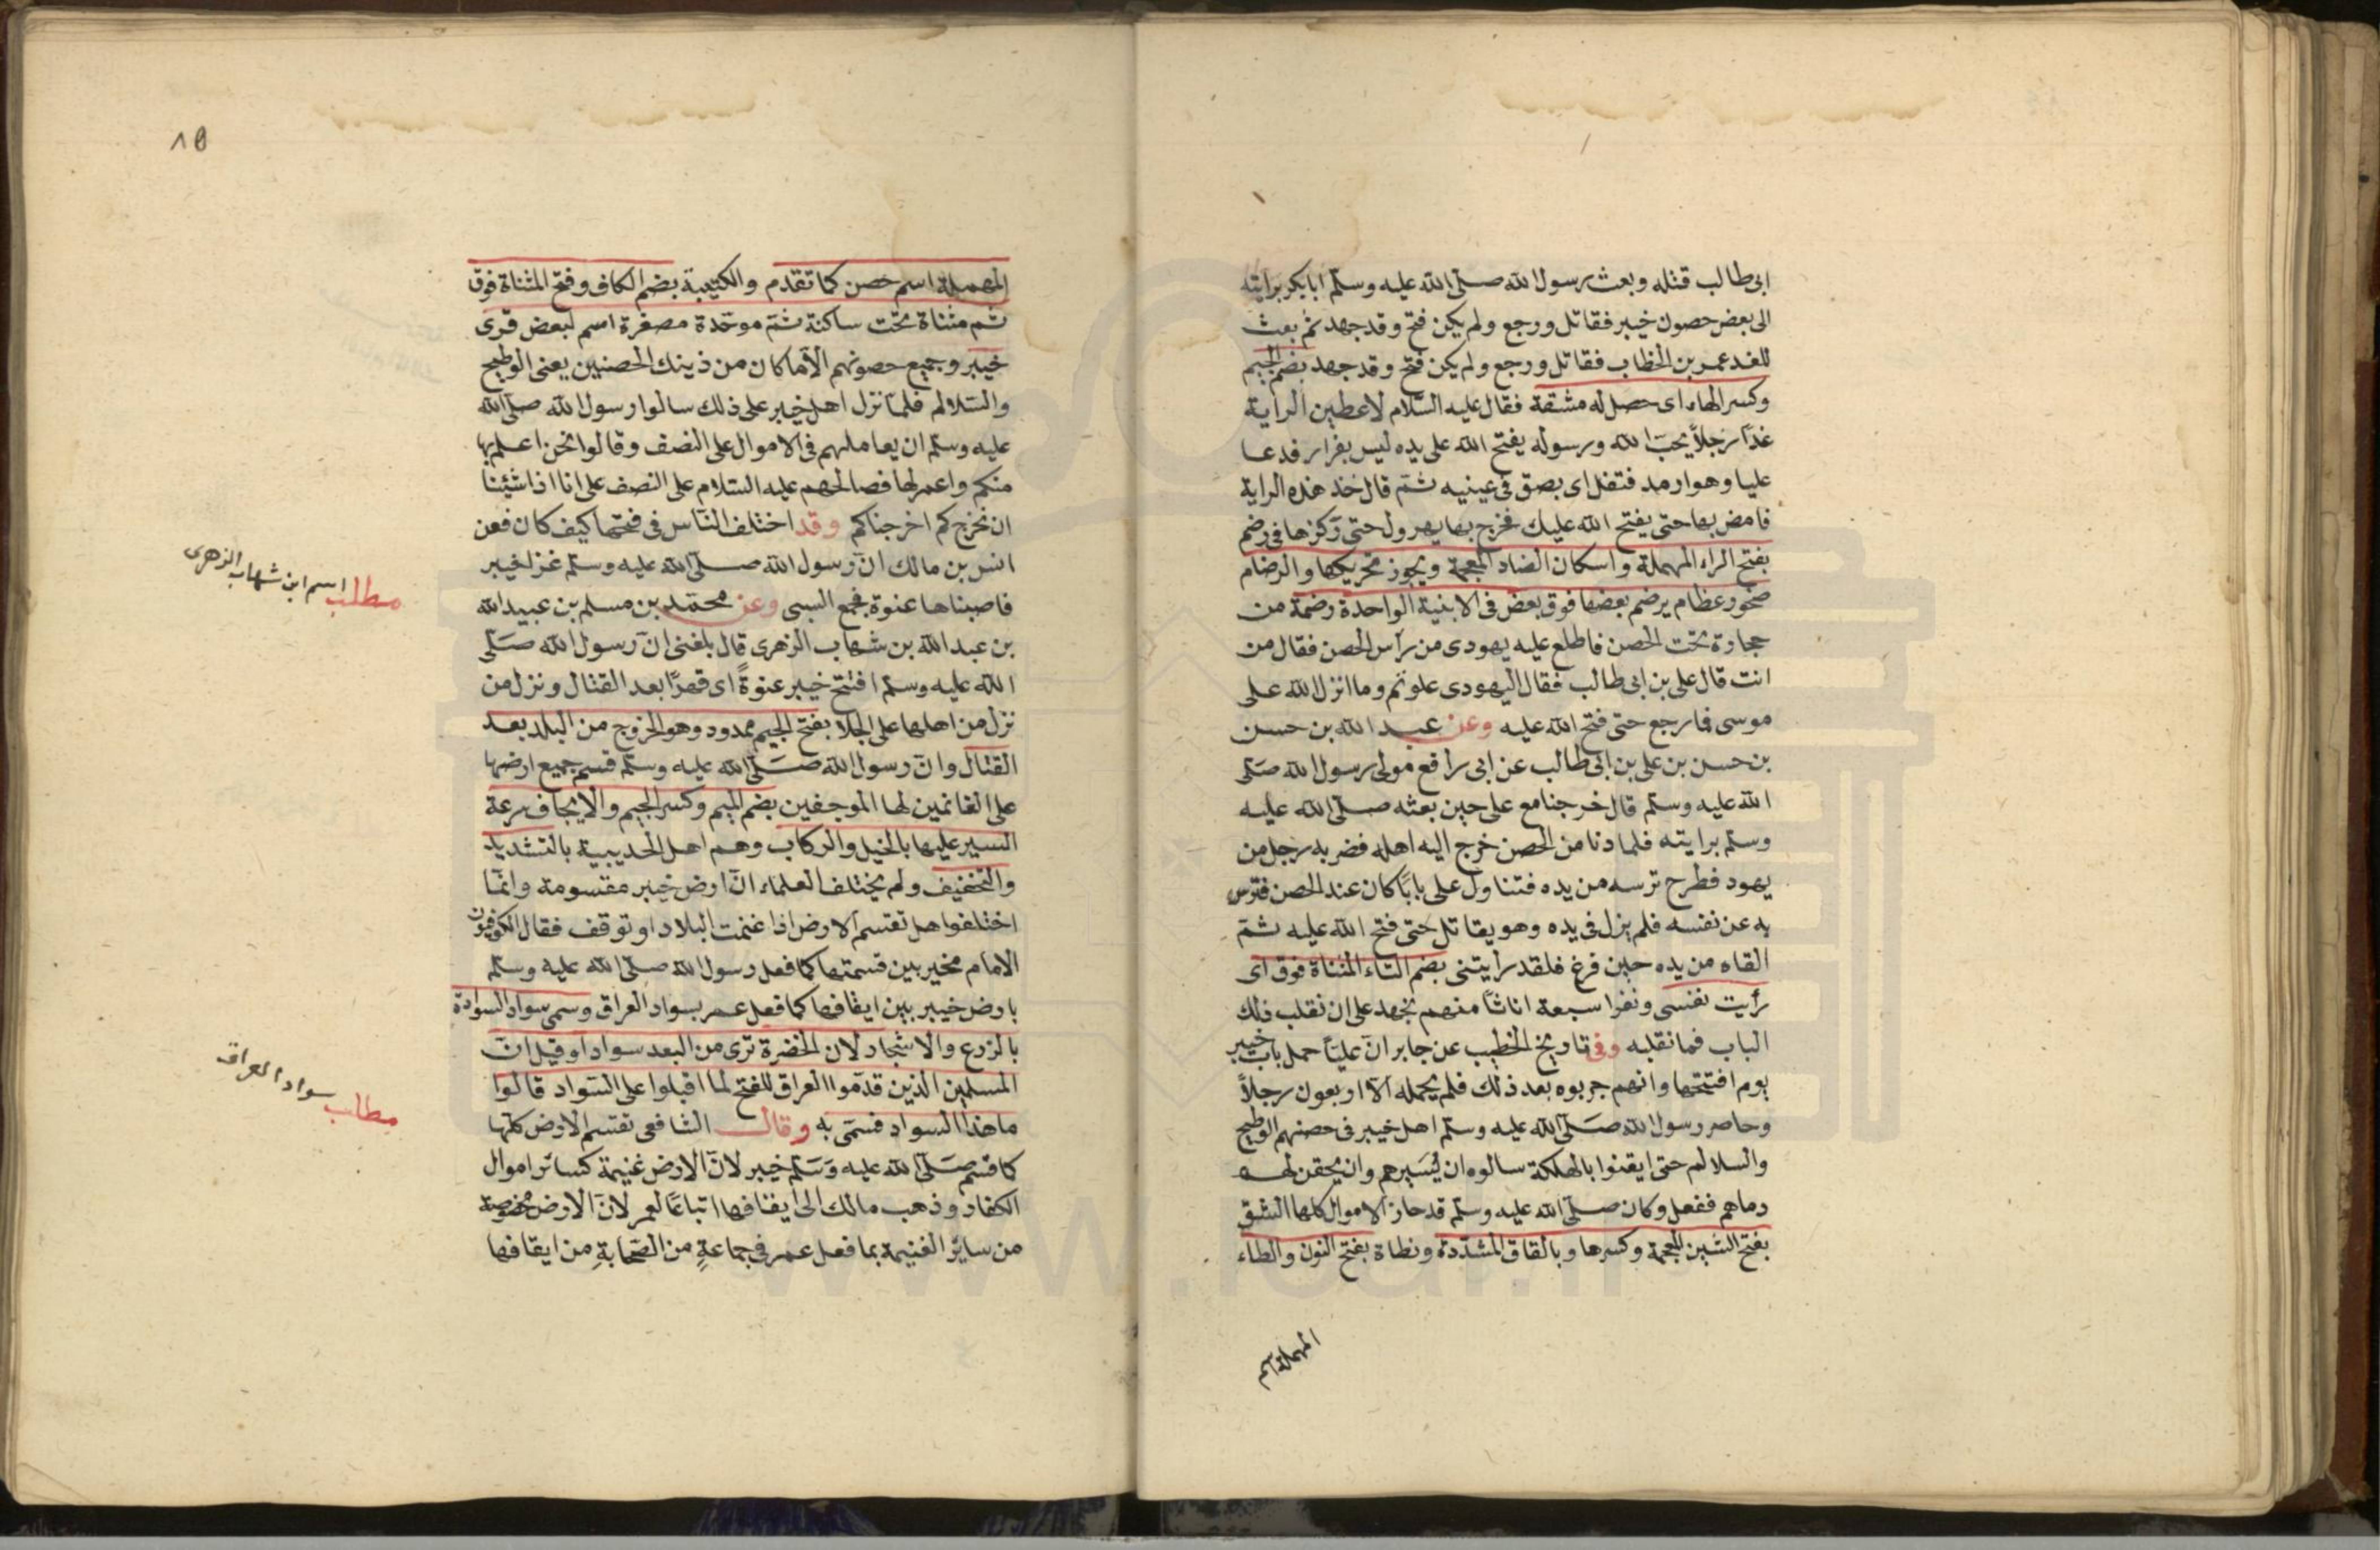 ابى طالب قتله وبعث رسول الله صلى الله عليه وسلم ابابكر برايته
الى بعض حصون خيبر فقاتل ورجع ولم يكن فتح وقد جهد ثم بعث
للغد عمر بن الخطاب فقاتل ورجع ولم يكن فتح وقد جهد بضم الجيم
وكسر الهاء اى حصل له مشقة فقال عليه السلام لاعطين الراية
غدا رجلاً يحب الله ورسوله يفتح الله على يده ليس بفرار فدعا
عليا وهو ارمد فتفل اى بصق فى عينيه ثم قال خذ هذه الراية
فامض بها حتى يفتح الله عليك فخرج بها يهرول حتى ركزها فى رضم
بفتح الراء المهملة واسكان الضاد المعجمة ويجوز تحريكها والرضام
صخور عظام يرضم بعضها فوق بعض فى الابنية الواحدة رضمة من
حجارة تحت الحصن فاطلع عليه يهودى من رأس الحصن فقال من
انت قال على بن ابى طالب فقال اليهودى علوتم وما انزل الله على
موسى فما رجع حتى فتح الله عليه وعن عبد الله بن حسن
بن حسن بن على بن ابى طالب عن ابى رافع مولى رسول الله صلى
الله عليه وسلم قال خرجنا مع على حين بعثه صلى الله عليه
وسلم برايته فلما دنا من الحصن خرج اليه اهله فضربه رجل من
يهود فطرح ترسه من يده فتناول على بابًا كان عند الحصن فترس
به عن نفسه فلم يزل فى يده وهو يقاتل حتى فتح الله عليه ثم
القاه من يده حين فرغ فلقد رأيتنى بضم التاء المثناة فوق اى
رأيت نفسى ونفرا سبعة اناثاً منهم نجهد على ان نقلب ذلك
الباب فما نقلبه وفى تاريخ الخطيب عن جابر انّ عليّاً حمل باب خيبر
يوم افتتحها وانهم جربوه بعد ذلك فلم يحمله الّا اربعون رجلاً
وحاصر رسول الله صلى الله عليه وسلم اهل خيبر فى حصنهم الوطيح
والسلالم حتى ايقنوا بالهلكة سالوه ان يُسَيرهم وان يحقن لهم
دماهم ففعل وكان صلى الله عليه وسلم قد حاز الاموال كلها الشق
بفتح الشين المعجمة وكسرها وبالقاف المشدّدة ونطاة بفتح النون والطاء
المهملة اسم
١٥
المهملة اسم حصن كما تقدم والكتيبة بضم الكاف وفتح المثناة فوق
ثم مثناة تحت ساكنة ثم موحّدة مصغرة اسم لبعض قرى
خيبر وجميع حصونهم الّا ما كان من ذينك الحصنين يعنى الوطيح
والسّلالم فلمّا نزل اهل خيبر على ذلك سالوا رسول الله صلى الله
عليه وسلم ان يعاملهم فى الاموال على النصف وقالوا نحن اعلم بها
منكم واعمر لها فصالحهم عليه السّلام على النصف على انا اذا شئنا
ان نخرجكم اخرجناكم وقد اختلف النّاس فى فتحها كيف كان فعن
انس بن مالك انّ رسول الله صلى الله عليه وسلم غزا خيبر
فاصبناها عنوة فجمع السبى وعن محمّد بن مسلم بن عبيد الله
بن عبد الله بن شهاب الزهرى قال بلغنى انّ رسول الله صلّى
الله عليه وسلم افتتح خيبر عنوةً اى قهرًا بعد القتال ونزل من
نزل من اهلها على الجلا بفتح الجيم ممدود وهو الخروج من البلد بعد
القتال وانّ رسول الله صلّى الله عليه وسلم قسم جميع ارضها
على الغانمين لها الموجفين بضم الميم وكسر الجيم والايجاف سرعة
السير عليها بالخيل والركاب وهم اهل الحديبية بالتشديد
والتخفيف ولم يختلف العلماء انّ ارض خيبر مقسومة وانّما
اختلفوا هل تقتسم الارض اذا غنمت البلاد او توقف فقال الكوفيون
الامام مخير بين قسمتها كما فعل رسول الله صلى الله عليه وسلم
بارض خيبر بين ايقافها كما فعل عمر بسواد العراق وسمى سواد السوادة
بالزرع والاشجار لان الخضرة ترى من البعد سوادا وقيل انّ
المسلمين الذين قدّموا العراق للفتح لما اقبلوا على السّواد قالوا
ما هذا السواد فسمّى به وقال الشافعى تقتسم الارض كلّها
كما قسم صلّى الله عليه وسلم خيبر لانّ الارض غنيمة كسائر اموال
الكفار وذهب مالك الى ايقافها اتباعًا لعمر لانّ الارض مخصوصة
من سائر الغنيمة بما فعل عمر فى جماعةٍ من الصّحابةِ من ايقافها
مطلب اسم ابن شهاب الزهرى
مطلب سواد العراق